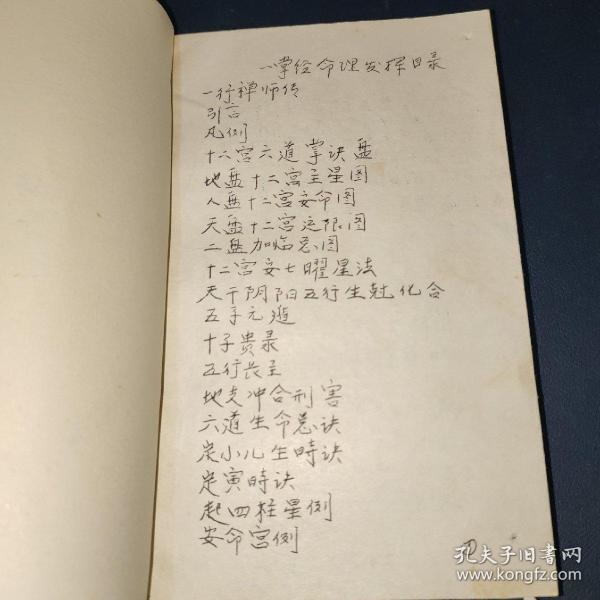 一掌经命理发挥目录
一行禅师传
引言
凡例
十二宫六道掌诀盘
地盘十二宫主星图
人盘十二宫安命图
天盘十二宫运限图
二盘加临总图
十二宫安七曜星法
天干阴阳五行生尅化合
五子元遁
十干贵录
五行长生
地支冲合刑害
六道生命总诀
定小儿生時诀
定寅時诀
起四柱星例
安命宫例
孔夫子旧书网
www.kongfz.com